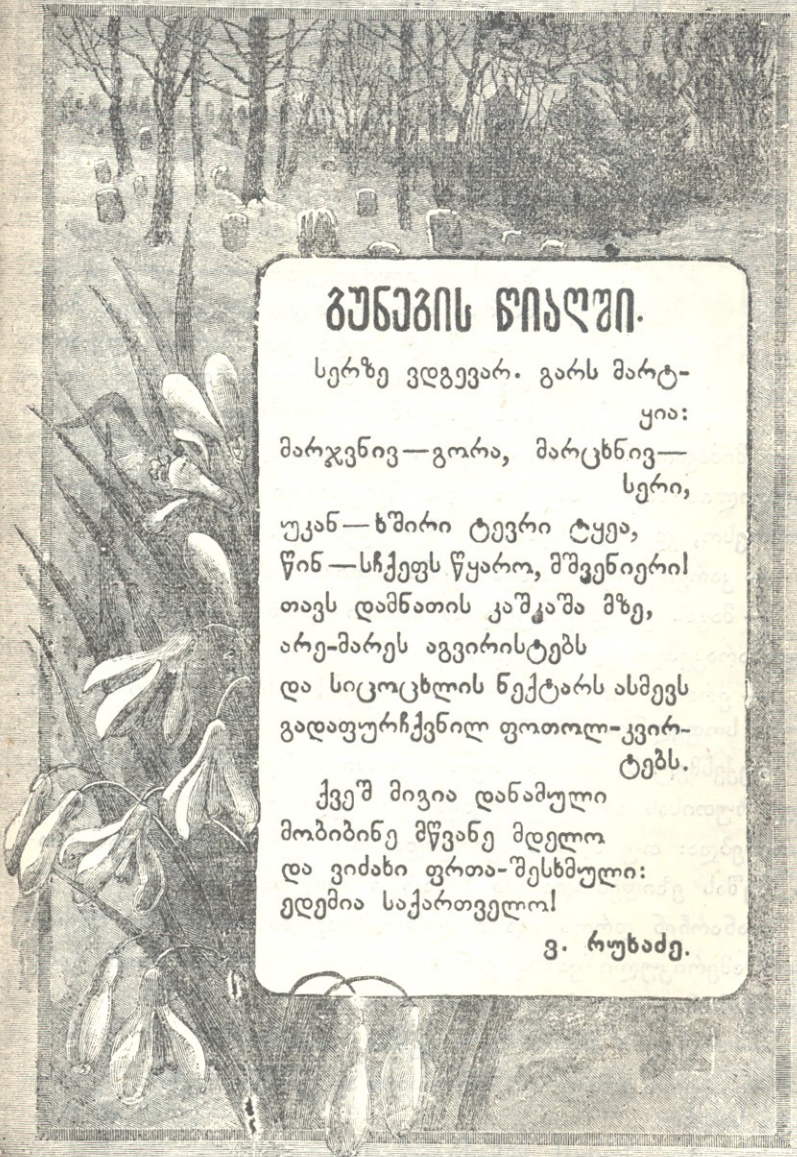 ბუნების წიაღში.
სერზე ვდგევარ. გარს მარტ-
ყია:
მარჯვნივ—გორა, მარცხნივ—
სერი,
უკან—ხშირი ტევრი ტყეა,
წინ—სჩქეფს წყარო, მშვენიერი!
თავს დამნათის კაშკაშა მზე,
არე-მარეს აგვირისტებს
და სიცოცხლის ნექტარს ასმევს
გადაფურჩქვნილ ფოთოლ-კვირ-
ტებს.
ქვეშ მიგია დანამული
მობიბინე მწვანე მდელო
და ვიძახი ფრთა-შესხმული:
ედემია საქართველო!
ვ. რუხაძე.